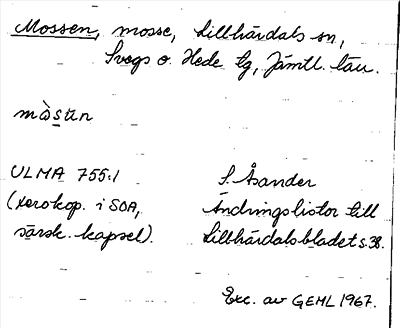 Mossen, mosse, Lillhärdals sn,
Svegs o. Hede tg, Jämtl. län.
mɑ̀su̇n
ULMA 755:1 S. Åsander
(xerokop. i SOA, Ändringslistor till
särsk. kapsel). Lillhärdalsbladet s. 38.
Exc. av GEHL 1967.